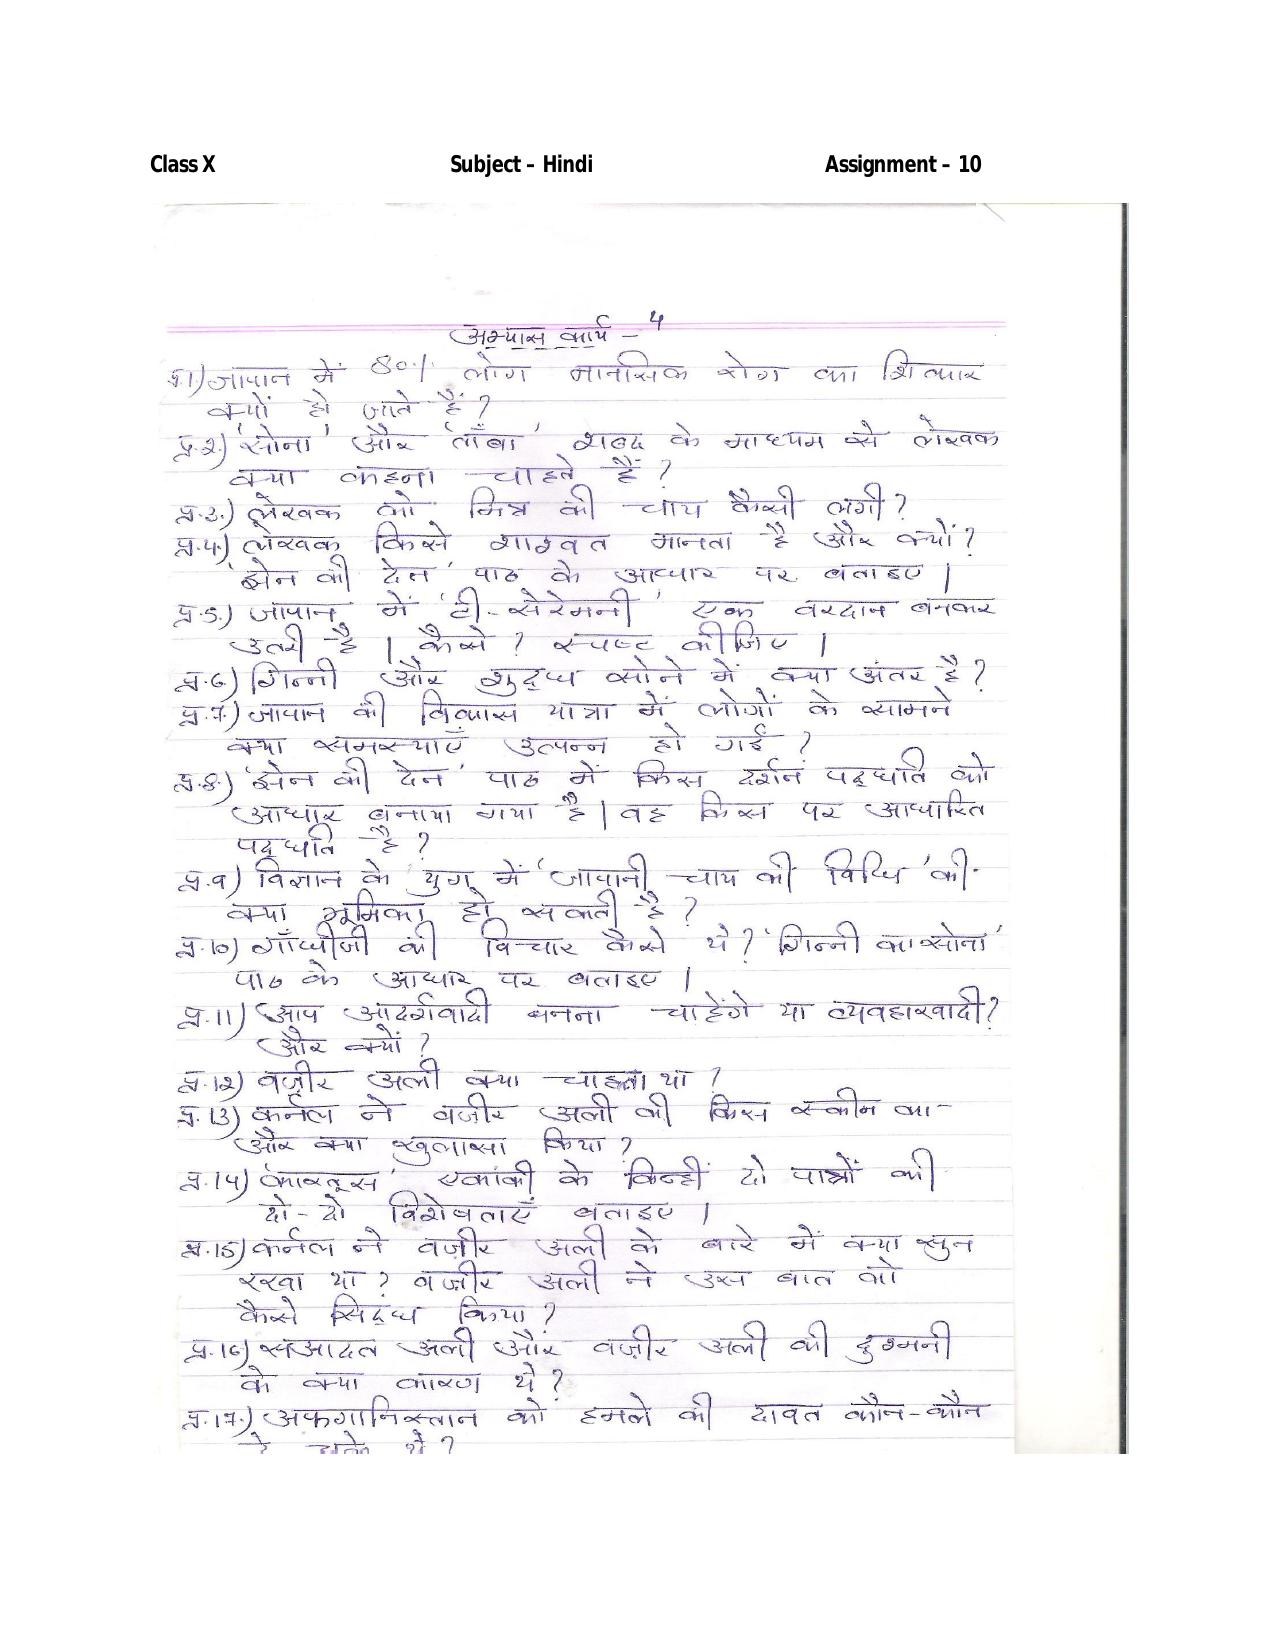 Class X Subject – Hindi Assignment – 10
अभ्यास कार्य – 4
प्र.1) जापान में 80% लोग मानसिक रोग का शिकार
क्यों हो जाते हैं ?
प्र.2.) 'सोना' और 'ताँबा' शब्द के माध्यम से लेखक
क्या कहना चाहते हैं ?
प्र.3.) लेखक को मित्र की चाय कैसी लगी ?
प्र.4.) लेखक किसे शाश्वत मानता है और क्यों ?
'झेन की देन' पाठ के आधार पर बताइए |
प्र.5.) जापान में 'टी-सेरेमनी' एक वरदान बनकर
उतरी है | कैसे ? स्पष्ट कीजिए |
प्र.6) गिन्नी और शुद्ध सोने में क्या अंतर है ?
प्र.7.) जापान की विकास यात्रा में लोगों के सामने
क्या समस्याएँ उत्पन्न हो गईं ?
प्र.8.) 'झेन की देन' पाठ में किस दर्शन पद्धति को
आधार बनाया गया है | वह किस पर आधारित
पद्धति है ?
प्र.9) विज्ञान के युग में 'जापानी चाय की विधि' की
क्या भूमिका हो सकती है ?
प्र.10) गाँधीजी की विचार कैसे थे ? 'गिन्नी का सोना'
पाठ के आधार पर बताइए |
प्र.11) आप आदर्शवादी बनना चाहेंगे या व्यवहारवादी ?
और क्यों ?
प्र.12) वज़ीर अली क्या चाहता था ?
प्र.13) कर्नल ने वज़ीर अली की किस स्कीम का
और क्या खुलासा किया ?
प्र.14) 'कारतूस' एकांकी के किन्हीं दो पात्रों की
दो-दो विशेषताएँ बताइए |
प्र.15) कर्नल ने वज़ीर अली के बारे में क्या सुन
रखा था ? वज़ीर अली ने उस बात को
कैसे सिद्ध किया ?
प्र.16) सआदत अली और वज़ीर अली की दुश्मनी
के क्या कारण थे ?
प्र.17.) अफगानिस्तान को हमले की दावत कौन-कौन
दे चुके थे ?